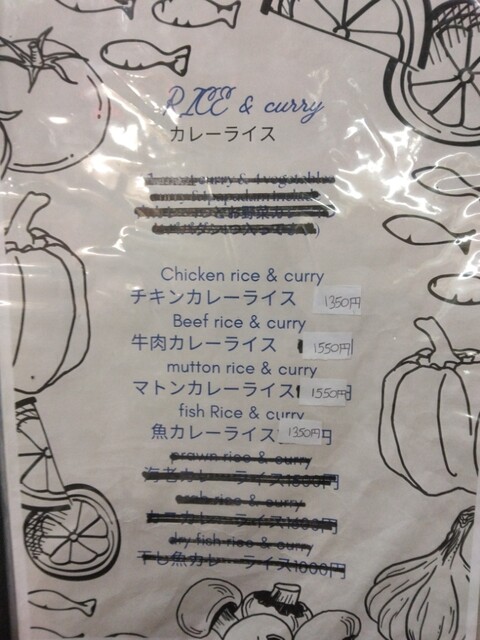 RICE & curry
カレーライス
Chicken rice & curry
チキンカレーライス 1350円
Beef rice & curry
牛肉カレーライス 1550円
mutton rice & curry
マトンカレーライス 1550円
fish Rice & curry
魚カレーライス 1350円
prawn rice & curry
海老カレーライス1500円
crab rice & curry
dry fish rice & curry
干し魚カレーライス1000円